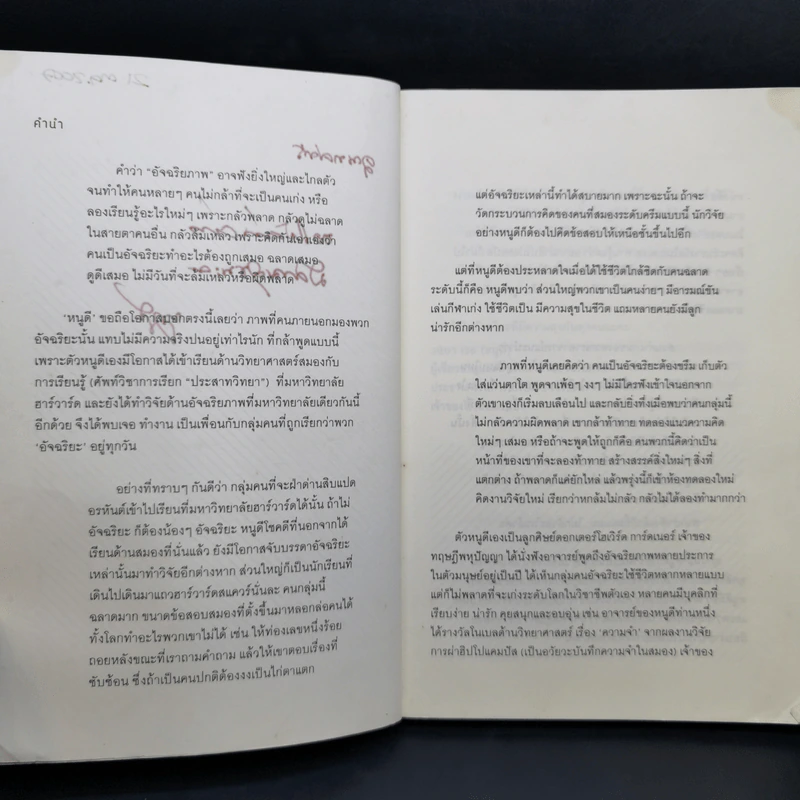 คำนำ
คำว่า “อัจฉริยภาพ” อาจฟังยิ่งใหญ่และไกลตัว
จนทำให้คนหลายๆ คนไม่กล้าที่จะเป็นคนเก่ง หรือ
ลองเรียนรู้อะไรใหม่ๆ เพราะกลัวพลาด กลัวดูไม่ฉลาด
ในสายตาคนอื่น กลัวล้มเหลว เพราะคิดกันเอาเองว่า
คนเป็นอัจฉริยะทำอะไรต้องถูกเสมอ ฉลาดเสมอ
ดูดีเสมอ ไม่มีวันที่จะล้มเหลวหรือผิดพลาด
‘หนูดี’ ขอถือโอกาสบอกตรงนี้เลยว่า ภาพที่คนภายนอกมองพวก
อัจฉริยะนั้น แทบไม่มีความจริงปนอยู่เท่าไรนัก ที่กล้าพูดแบบนี้
เพราะตัวหนูดีเองมีโอกาสได้เข้าเรียนด้านวิทยาศาสตร์สมองกับ
การเรียนรู้ (ศัพท์วิชาการเรียก “ประสาทวิทยา”) ที่มหาวิทยาลัย
ฮาร์วาร์ด และยังได้ทำวิจัยด้านอัจฉริยภาพที่มหาวิทยาลัยเดียวกันนี้
อีกด้วย จึงได้พบเจอ ทำงาน เป็นเพื่อนกับกลุ่มคนที่ถูกเรียกว่าพวก
‘อัจฉริยะ’ อยู่ทุกวัน
อย่างที่ทราบๆ กันดีว่า กลุ่มคนที่จะฝ่าด่านสิบแปด
อรหันต์เข้าไปเรียนที่มหาวิทยาลัยฮาร์วาร์ดได้นั้น ถ้าไม่
อัจฉริยะ ก็ต้องน้องๆ อัจฉริยะ หนูดีโชคดีที่นอกจากได้
เรียนด้านสมองที่นั่นแล้ว ยังมีโอกาสจับบรรดาอัจฉริยะ
เหล่านั้นมาทำวิจัยอีกต่างหาก ส่วนใหญ่ก็เป็นนักเรียนที่
เดินไปเดินมาแถวฮาร์วาร์ดสแควร์นั่นละ คนกลุ่มนี้
ฉลาดมาก ขนาดข้อสอบสมองที่ตั้งขึ้นมาหลอกล่อคนได้
ทั้งโลกทำอะไรพวกเขาไม่ได้ เช่น ให้ท่องเลขหนึ่งร้อย
ถอยหลังขณะที่เราถามคำถาม แล้วให้เขาตอบเรื่องที่
ซับซ้อน ซึ่งถ้าเป็นคนปกติต้องงงเป็นไก่ตาแตก
แต่อัจฉริยะเหล่านี้ทำได้สบายมาก เพราะฉะนั้น ถ้าจะ
วัดกระบวนการคิดของคนที่สมองระดับครีมแบบนี้ นักวิจัย
อย่างหนูดีก็ต้องไปคิดข้อสอบให้เหนือชั้นขึ้นไปอีก
แต่ที่หนูดีต้องประหลาดใจเมื่อได้ใช้ชีวิตใกล้ชิดกับคนฉลาด
ระดับนี้ก็คือ หนูดีพบว่า ส่วนใหญ่พวกเขาเป็นคนง่ายๆ มีอารมณ์ขัน
เล่นกีฬาเก่ง ใช้ชีวิตเป็น มีความสุขในชีวิต แถมหลายคนยังมีลูก
น่ารักอีกต่างหาก
ภาพที่หนูดีเคยคิดว่า คนเป็นอัจฉริยะต้องขรึม เก็บตัว
ใส่แว่นตาโต พูดจาเพ้อๆ งงๆ ไม่มีใครฟังเข้าใจนอกจาก
ตัวเขาเองก็เริ่มลบเลือนไป และกลับยิ่งทึ่งเมื่อพบว่าคนกลุ่มนี้
ไม่กลัวความผิดพลาด เขากล้าท้าทาย ทดลองแนวความคิด
ใหม่ๆ เสมอ หรือถ้าจะพูดให้ถูกก็คือ คนพวกนี้คิดว่าเป็น
หน้าที่ของเขาที่จะลองท้าทาย สร้างสรรค์สิ่งใหม่ๆ สิ่งที่
แตกต่าง ถ้าพลาดก็แค่ยักไหล่ แล้วพรุ่งนี้ก็เข้าห้องทดลองใหม่
คิดงานวิจัยใหม่ เรียกว่าหกล้มไม่กลัว กลัวไม่ได้ลองทำมากกว่า
ตัวหนูดีเองเป็นลูกศิษย์ดอกเตอร์โฮเวิร์ด การ์ดเนอร์ เจ้าของ
ทฤษฎีพหุปัญญา ได้นั่งฟังอาจารย์พูดถึงอัจฉริยภาพหลายประการ
ในตัวมนุษย์อยู่เป็นปี ได้เห็นกลุ่มคนอัจฉริยะใช้ชีวิตหลากหลายแบบ
แต่ก็ไม่พลาดที่จะเก่งระดับโลกในวิชาชีพตัวเอง หลายคนมีบุคลิกที่
เรียบง่าย น่ารัก คุยสนุกและอบอุ่น เช่น อาจารย์ของหนูดีท่านหนึ่ง
ได้รางวัลโนเบลด้านวิทยาศาสตร์ เรื่อง ‘ความจำ’ จากผลงานวิจัย
การผ่าฮิปโปแคมปัส (เป็นอวัยวะบันทึกความจำในสมอง) เจ้าของ